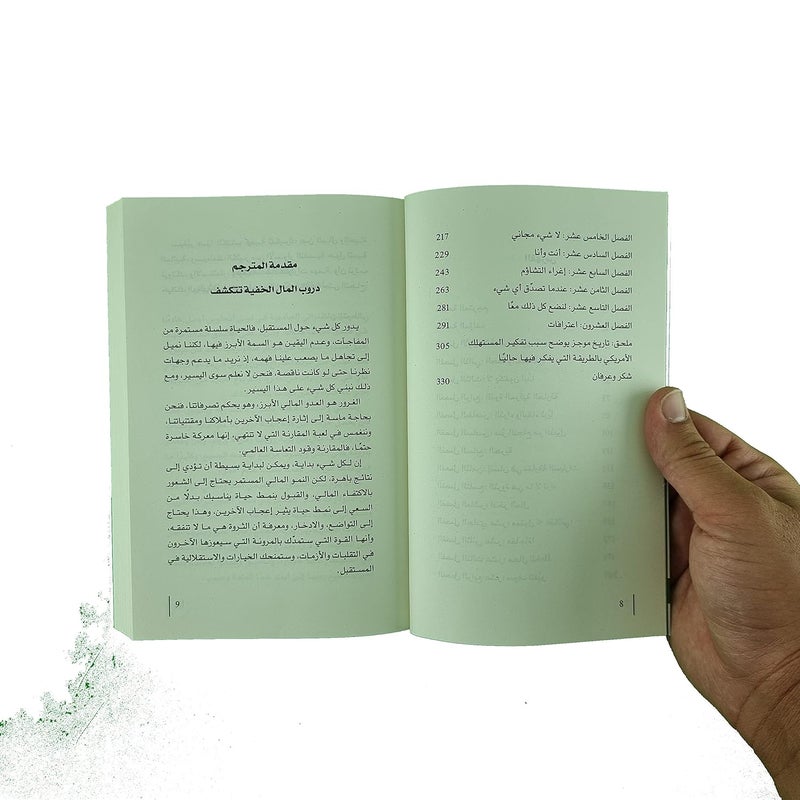 الفصل الخامس عشر: لا شيء مجاني 217
الفصل السادس عشر: أنت وأنا 229
الفصل السابع عشر: إغراء التشاؤم 243
الفصل الثامن عشر: عندما تصدّق أي شيء 263
الفصل التاسع عشر: لنضع كل ذلك معًا 281
الفصل العشرون: اعترافات 291
ملحق: تاريخ موجز يوضح سبب تفكير المستهلك 305
الأمريكي بالطريقة التي يفكر فيها حاليًا
شكر وعرفان 330
8
مقدمة المترجم
دروب المال الخفية تتكشف
يدور كل شيء حول المستقبل، فالحياة سلسلة مستمرة من
المفاجآت، وعدم اليقين هو السمة الأبرز فيها، لكننا نميل
إلى تجاهل ما يصعب علينا فهمه، إذ نريد ما يدعم وجهات
نظرنا حتى لو كانت ناقصة، فنحن لا نعلم سوى اليسير، ومع
ذلك نبني كل شيء على هذا اليسير.
الغرور هو العدو المالي الأبرز، وهو يحكم تصرفاتنا، فنحن
بحاجة ماسة إلى إثارة إعجاب الآخرين بأملاكنا ومقتنياتنا،
وننغمس في لعبة المقارنة التي لا تنتهي، إنها معركة خاسرة
حتمًا، فالمقارنة وقود التعاسة العالمي.
إن لكل شيء بداية، ويمكن لبداية بسيطة أن تؤدي إلى
نتائج باهرة، لكن النمو المالي المستمر يحتاج إلى الشعور
بالاكتفاء المالي، والقبول بنمط حياة يناسبك بدلًا من
السعي إلى نمط حياة يثير إعجاب الآخرين، وهذا يحتاج
إلى التواضع، والادخار، ومعرفة أن الثروة هي ما لا تنفقه،
وأنها القوة التي ستمدّك بالمرونة التي سيعوزها الآخرون
في التقلبات والأزمات، وستمنحك الخيارات والاستقلالية في
المستقبل.
9